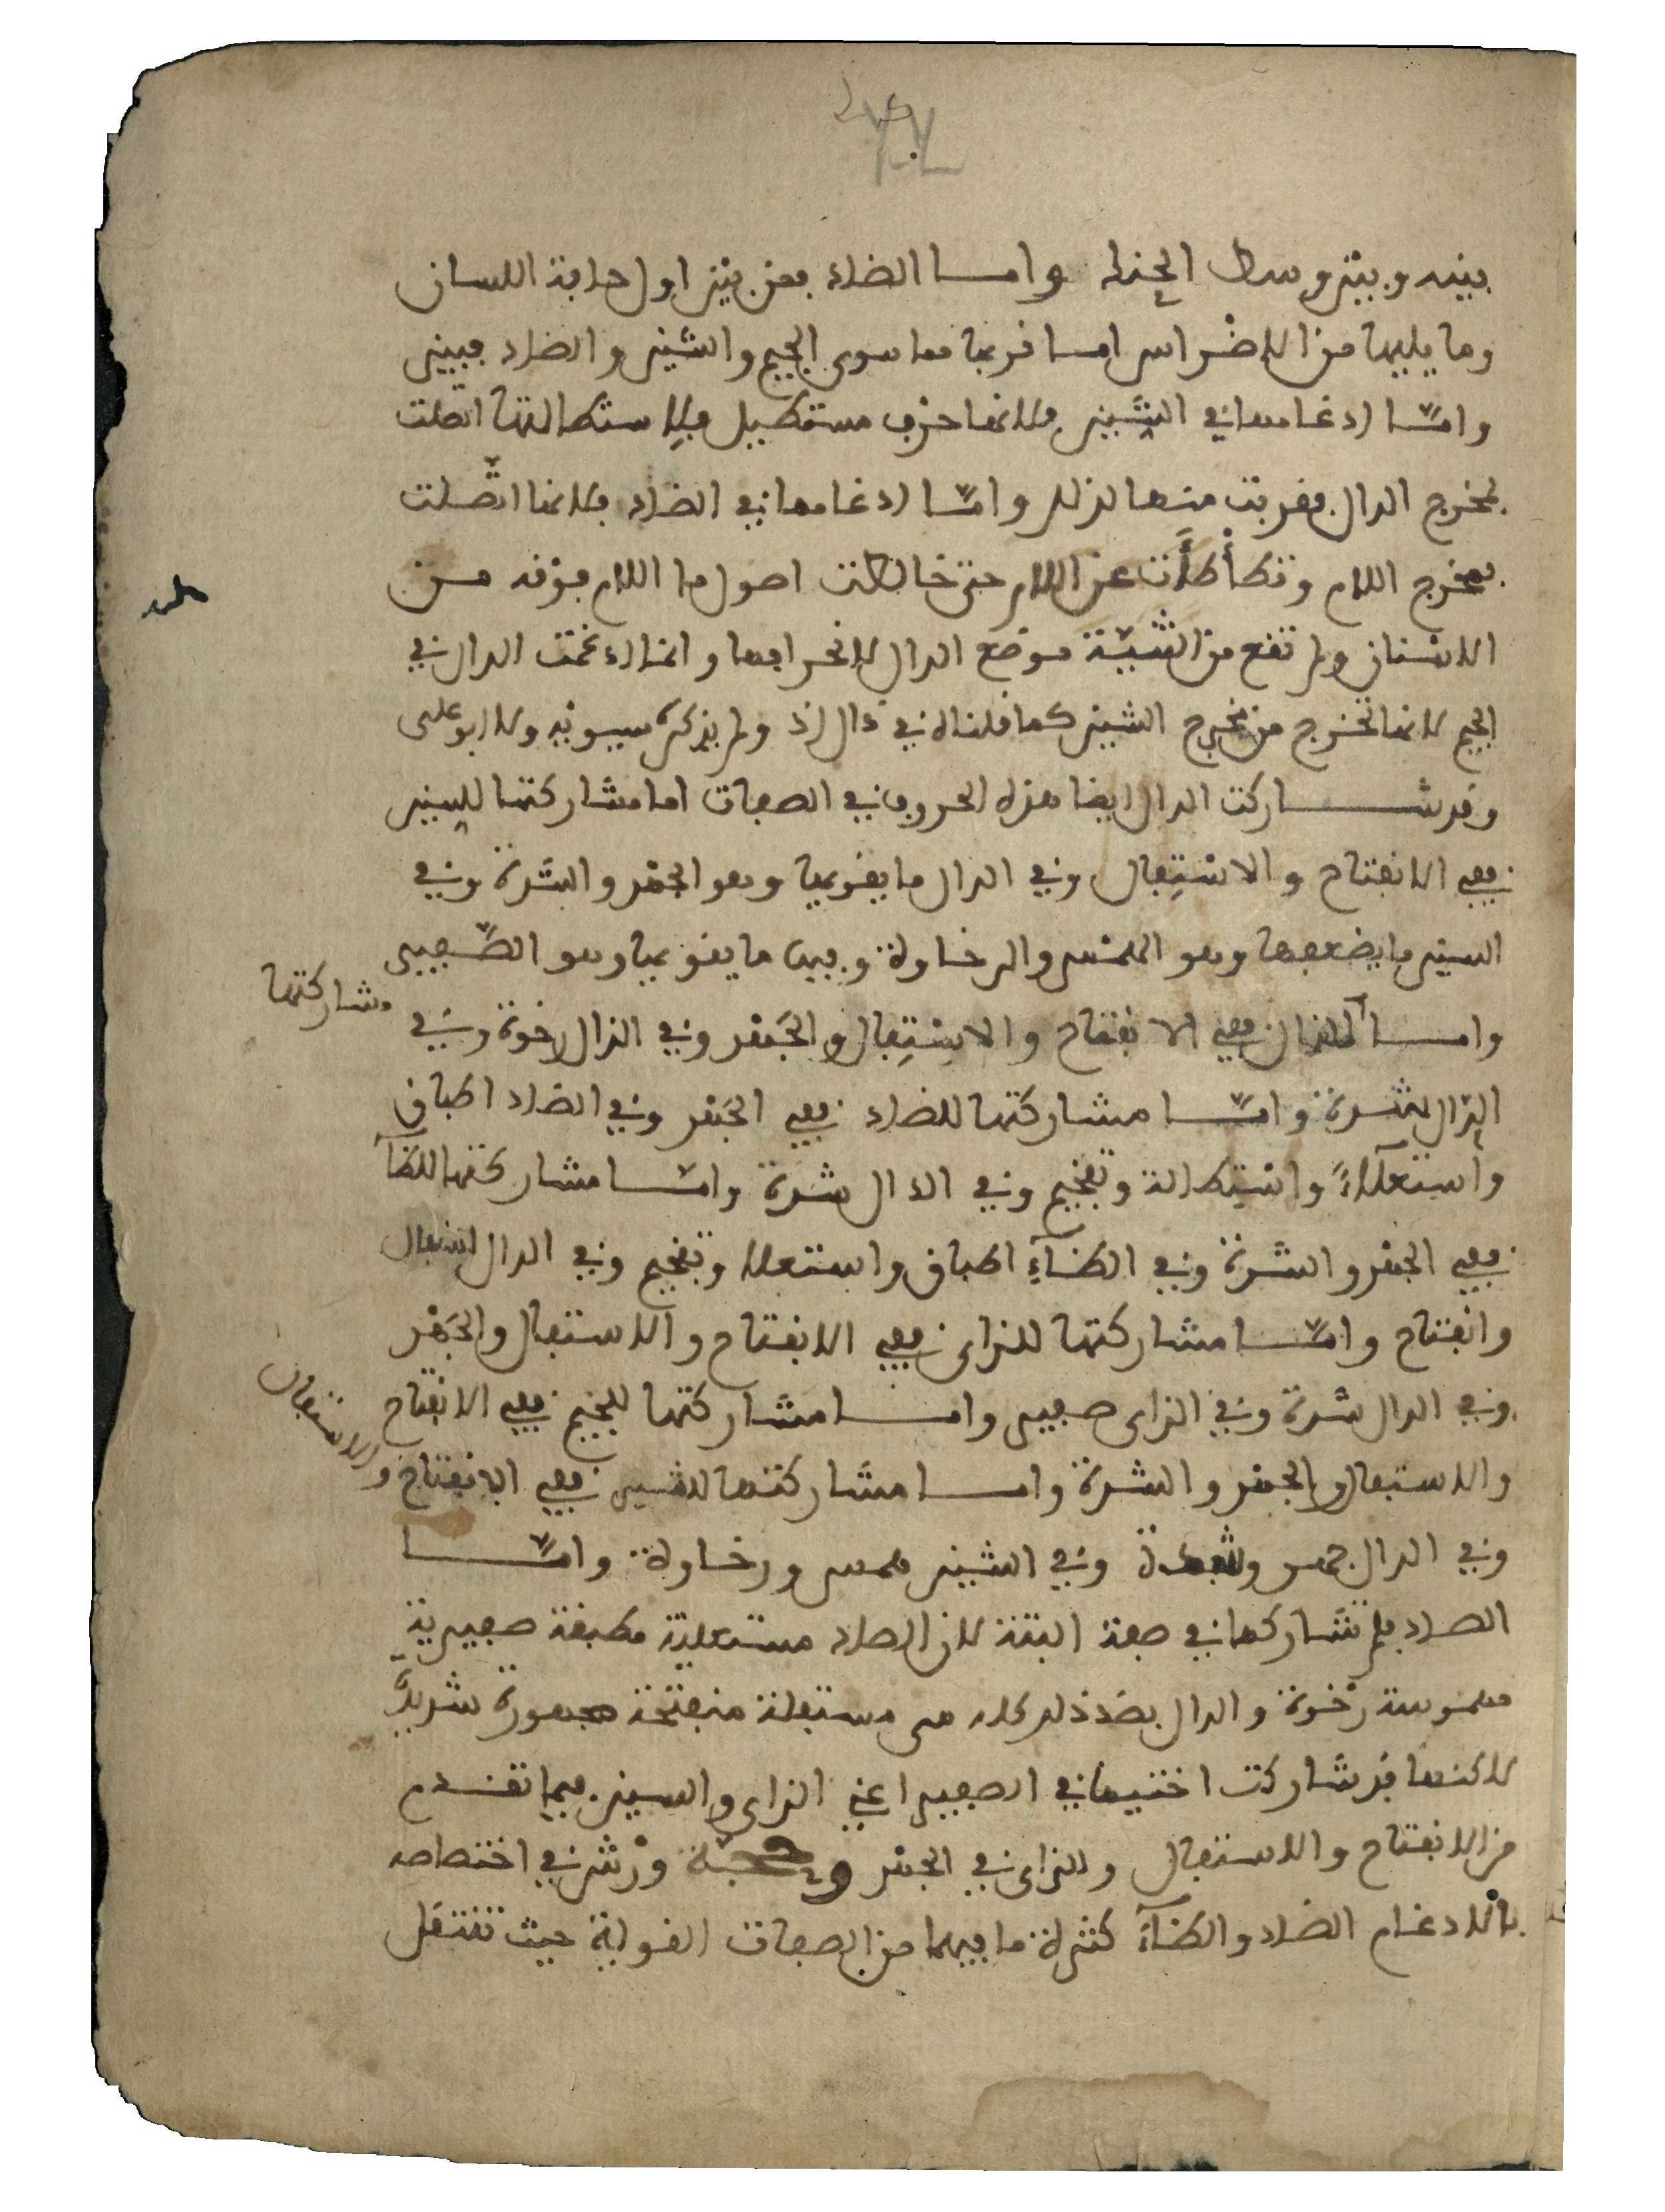 بينه وبين وسط الحنك واما الضاد فمن بين اول حافة اللسان
وما يليها من الاضراس اما قربها مما سوى الجيم والشين والضاد فبين
وامّا ادغامها في الشين فلانها حرف مستطيل فلاستطالتها اتصلت
بمخرج الدال فقربت منها لذلك وامّا ادغامها في الضاد فلانها اتّصلت
بمخرج اللام وتطأطأت عن اللام حتى خالطت اصول ما اللام فوقه من
الاسنان ولم تقع من الثنية موضع الدال لانحرافها وانما ادغمت الدال في
الجيم لانها تخرج من مخرج الشين كما قلناه في ذال اذ ولم يذكره سيبويه ولا ابو علي
وقد شاركت الدال ايضا هذه الحروف في الصفات اما مشاركتها للسين
ففي الانفتاح والاستفال وفي الدال ما يقويها وهو الجهر والشدة وفي
السين ما يضعفها وهو الهمس والرخاوة وفيها ما يقويها وهو الصّفير
وامّا مشاركتها
للذال ففي الانفتاح والاستفال والجهر وفي الذال رخوة وفي
الدال شدة وامّا مشاركتها للضاد ففي الجهر وفي الضاد اطباق
واستعلاءً واستطالة وتفخيم وفي الدال شدة وامّا مشاركتها للظآء
ففي الجهر والشدة وفي الظآء اطباق واستعلا وتفخيم وفي الدال استفال
وانفتاح وامّا مشاركتها للزاى ففي الانفتاح والاستفال والجهر
وفي الدال شدة وفي الزاى صفير وامّا مشاركتها للجيم ففي الانفتاح
والاستفال والجهر والشدة واما مشاركتها للشين ففي الانفتاح والاستفال
وفي الدال جهر وشدة وفي الشين همس ورخاوة وامّا
الصاد فلم تشاركها في صفة البتة لان الصاد مستعلية مطبقة صفيرية
مهموسة رخوة والدال بضد ذلك كله هى مستفلة منفتحة مجهورة شديدة
لاكنها قد شاركت اختيها في الصفير اعني الزاى والسين فيما تقدم
من الانفتاح والاستفال والزاى في الجهر وحجة ورش في اختصاصه
بالادغام الضاد والظآء كثرة ما فيهما من الصفات القوية حيث تنتقل